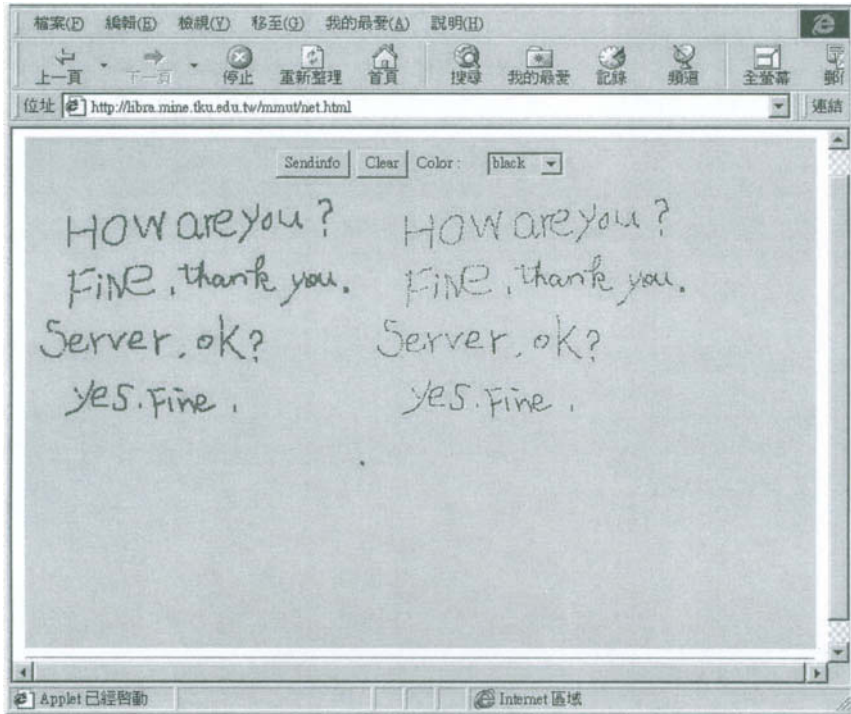 檔案(F) 編輯(E) 檢視(V) 移至(G) 我的最愛(A) 說明(H)
上一頁 下一頁 停止 重新整理 首頁 搜尋 我的最愛 記錄 頻道 全螢幕
位址 http://libra.mine.tku.edu.tw/mmut/net.html 連結
Sendinfo Clear Color: black
How are you? How are you?
Fine, thank you. Fine, thank you.
Server, ok? Server, ok?
yes. Fine. yes. Fine.
Applet 已經啟動 Internet 區域